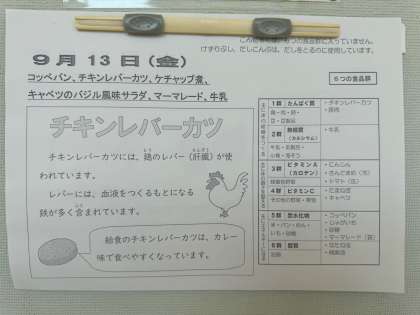 けずりぶし、だしこんぶは、だしをとるのに使用しています。
9月13日(金)
コッペパン、チキンレバーカツ、ケチャップ煮、
キャベツのバジル風味サラダ、マーマレード、牛乳
6つの食品群
チキンレバーカツ
チキンレバーカツには、鶏のレバー(肝臓)が使
われています。
レバーには、血液をつくるもとになる
鉄が多く含まれています。
給食のチキンレバーカツは、カレー
味で食べやすくなっています。
1群 たんぱく質
・チキンレバーカツ
・豚肉
2群 無機質
(カルシウム)
・牛乳
3群 ビタミンA
(カロテン)
・にんじん
・トマト(缶)
4群 ビタミンC
・たまねぎ
・キャベツ
5群 炭水化物
・コッペパン
・じゃがいも
・砂糖
・マーマレード(袋)
6群 脂質